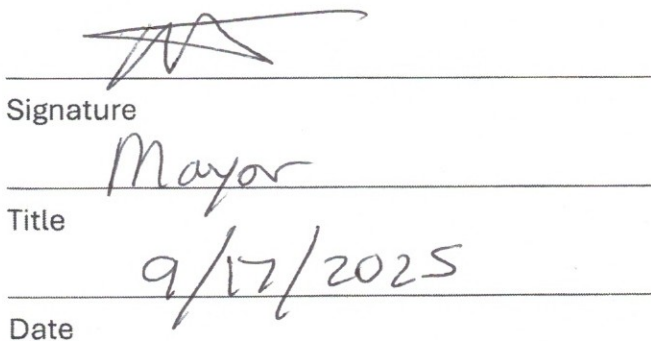 Signature
Mayor
Title
9/17/2025
Date